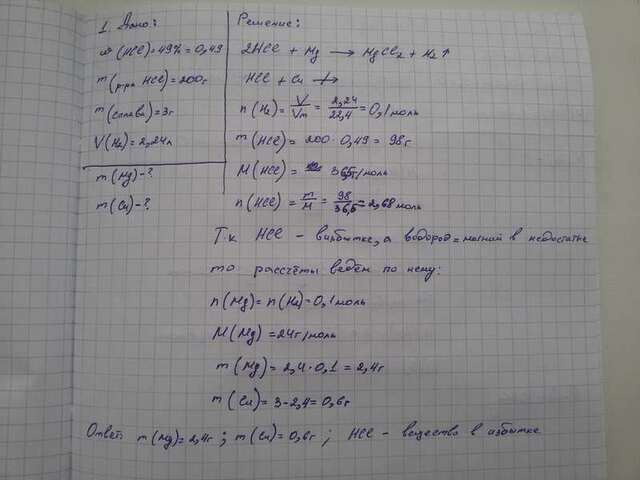 1. Дано:
ω(HCl)=49%=0,49
m(р-ра HCl)=200г
m(сплава)=3г
V(H₂)=2,24л
m(Mg)-?
m(Cu)-?
Решение:
2HCl + Mg → MgCl₂ + H₂↑
HCl + Cu ↛
n(H₂) = V/Vm = 2,24/22,4 = 0,1 моль
m(HCl) = 200 · 0,49 = 98г
M(HCl) = 36,5г/моль
n(HCl) = m/M = 98/36,5 = 2,68 моль
Т.к HCl - в избытке, а водород = магний в недостатке
то рассчёты ведём по нему:
n(Mg) = n(H₂) = 0,1 моль
M(Mg) = 24г/моль
m(Mg) = 2,4 · 0,1 = 2,4г
m(Cu) = 3-2,4 = 0,6г
Ответ: m(Mg)=2,4г ; m(Cu)=0,6г ; HCl - вещество в избытке